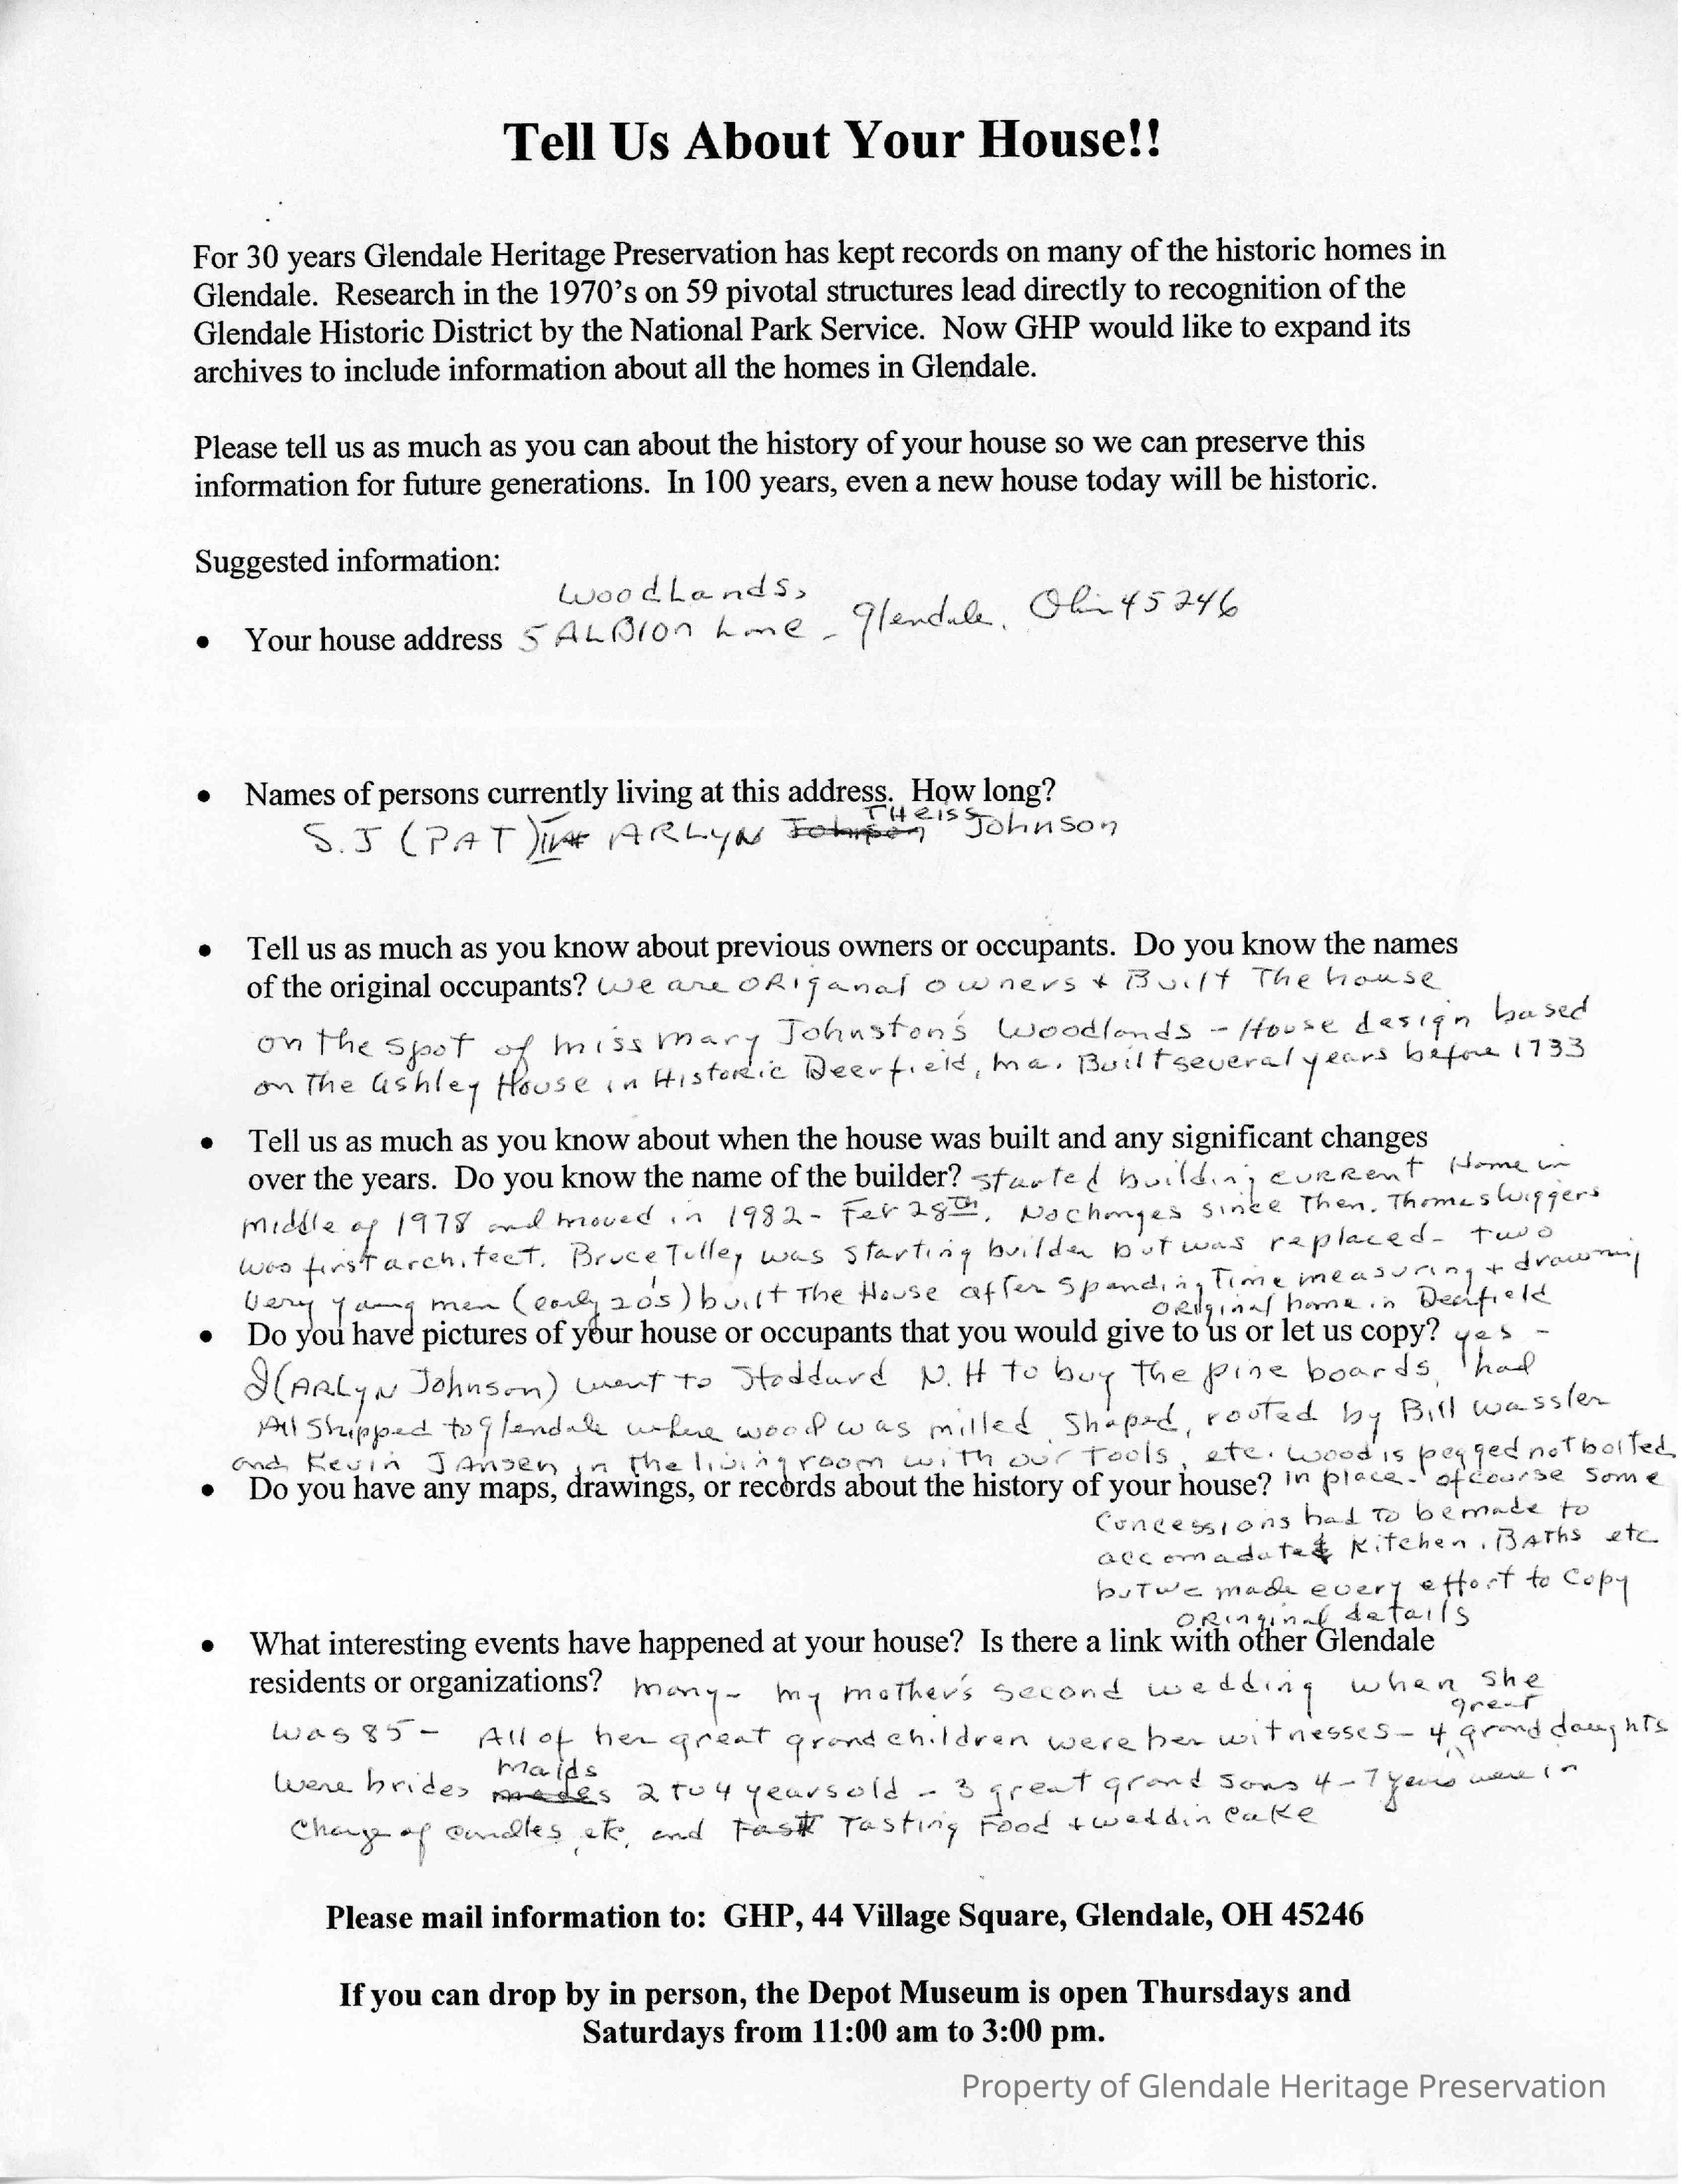 Tell Us About Your House!!
For 30 years Glendale Heritage Preservation has kept records on many of the historic homes in
Glendale. Research in the 1970's on 59 pivotal structures lead directly to recognition of the
Glendale Historic District by the National Park Service. Now GHP would like to expand its
archives to include information about all the homes in Glendale.
Please tell us as much as you can about the history of your house so we can preserve this
information for future generations. In 100 years, even a new house today will be historic.
Suggested information:
WoodLands,
• Your house address 5 ALBION Lane - Glendale, Ohio 45246
• Names of persons currently living at this address. How long?
THeiss
S.J (PAT) III + ARLYN Johnson Johnson
• Tell us as much as you know about previous owners or occupants. Do you know the names
of the original occupants? We are ORiganal owners + Built The house
on the spot of miss mary Johnston's Woodlands - House design based
on The Ashley House in Historic Deerfield, ma. Built several years before 1733
• Tell us as much as you know about when the house was built and any significant changes
over the years. Do you know the name of the builder? started building current Home in
middle of 1978 and moved in 1982 - Feb 28th. No changes since Then. Thomas Wiggers
was first architect. Bruce Tulley was starting builder but was replaced - two
Very young men (early 20's) built The House after spending Time measuring + drawing
original home in Deerfield
• Do you have pictures of your house or occupants that you would give to us or let us copy? yes -
I (ARLyN Johnson) went to Stoddard N.H to buy the pine boards, had
All Shipped to Glendale where wood was milled, shaped, routed by Bill Wassler
and Kevin JAnsen in the living room with our Tools, etc. Wood is pegged not bolted
• Do you have any maps, drawings, or records about the history of your house? in place. of course some
Concessions had To be made to
accomadate Kitchen, BAThs etc
but we made every effort to Copy
ORinginal details
• What interesting events have happened at your house? Is there a link with other Glendale
residents or organizations? many - my mother's second wedding when she
great
was 85 - All of her great grandchildren were her witnesses - 4 grand daughts
maids
Were brides mades 2 to 4 years old - 3 great grand sons 4 - 7 years were in
Charge of candles, etc, and Tast Tasting Food + weddin cake
Please mail information to: GHP, 44 Village Square, Glendale, OH 45246
If you can drop by in person, the Depot Museum is open Thursdays and
Saturdays from 11:00 am to 3:00 pm.
Property of Glendale Heritage Preservation